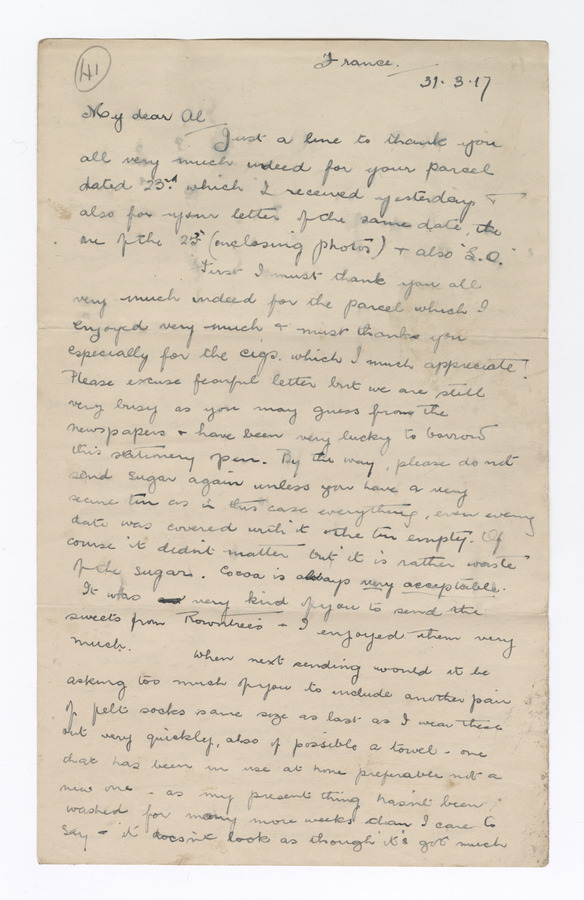 41
France.
31.3.17
My dear Al
Just a line to thank you
all very much indeed for your parcel
dated 23rd which I received yesterday &
also for your letter of the same date, the
one of the 25th (enclosing photos) & also "S.O."
First I must thank you all
very much indeed for the parcel which I
enjoyed very much & must thank you
especially for the cigs. which I much appreciate!
Please excuse fearful letter but we are still
very busy as you may guess from the
newspapers & have been very lucky to borrow
this stationery pen. By the way, please do not
send sugar again unless you have a very
secure tin as in this case everything, even every
date was covered with it & the tin empty. Of
course it didn't matter but it is rather waste
of the sugar. Cocoa is always very acceptable.
It was very kind of you to send the
sweets from Rowntree's & I enjoyed them very
much. When next sending would it be
asking too much of you to include another pair
of felt socks same size as last as I wear these
out very quickly, also if possible a towel - one
that has been in use at home preferable not a
new one - as my present thing hasn't been
washed for many more weeks than I care to
say - it doesn't look as though it's got much